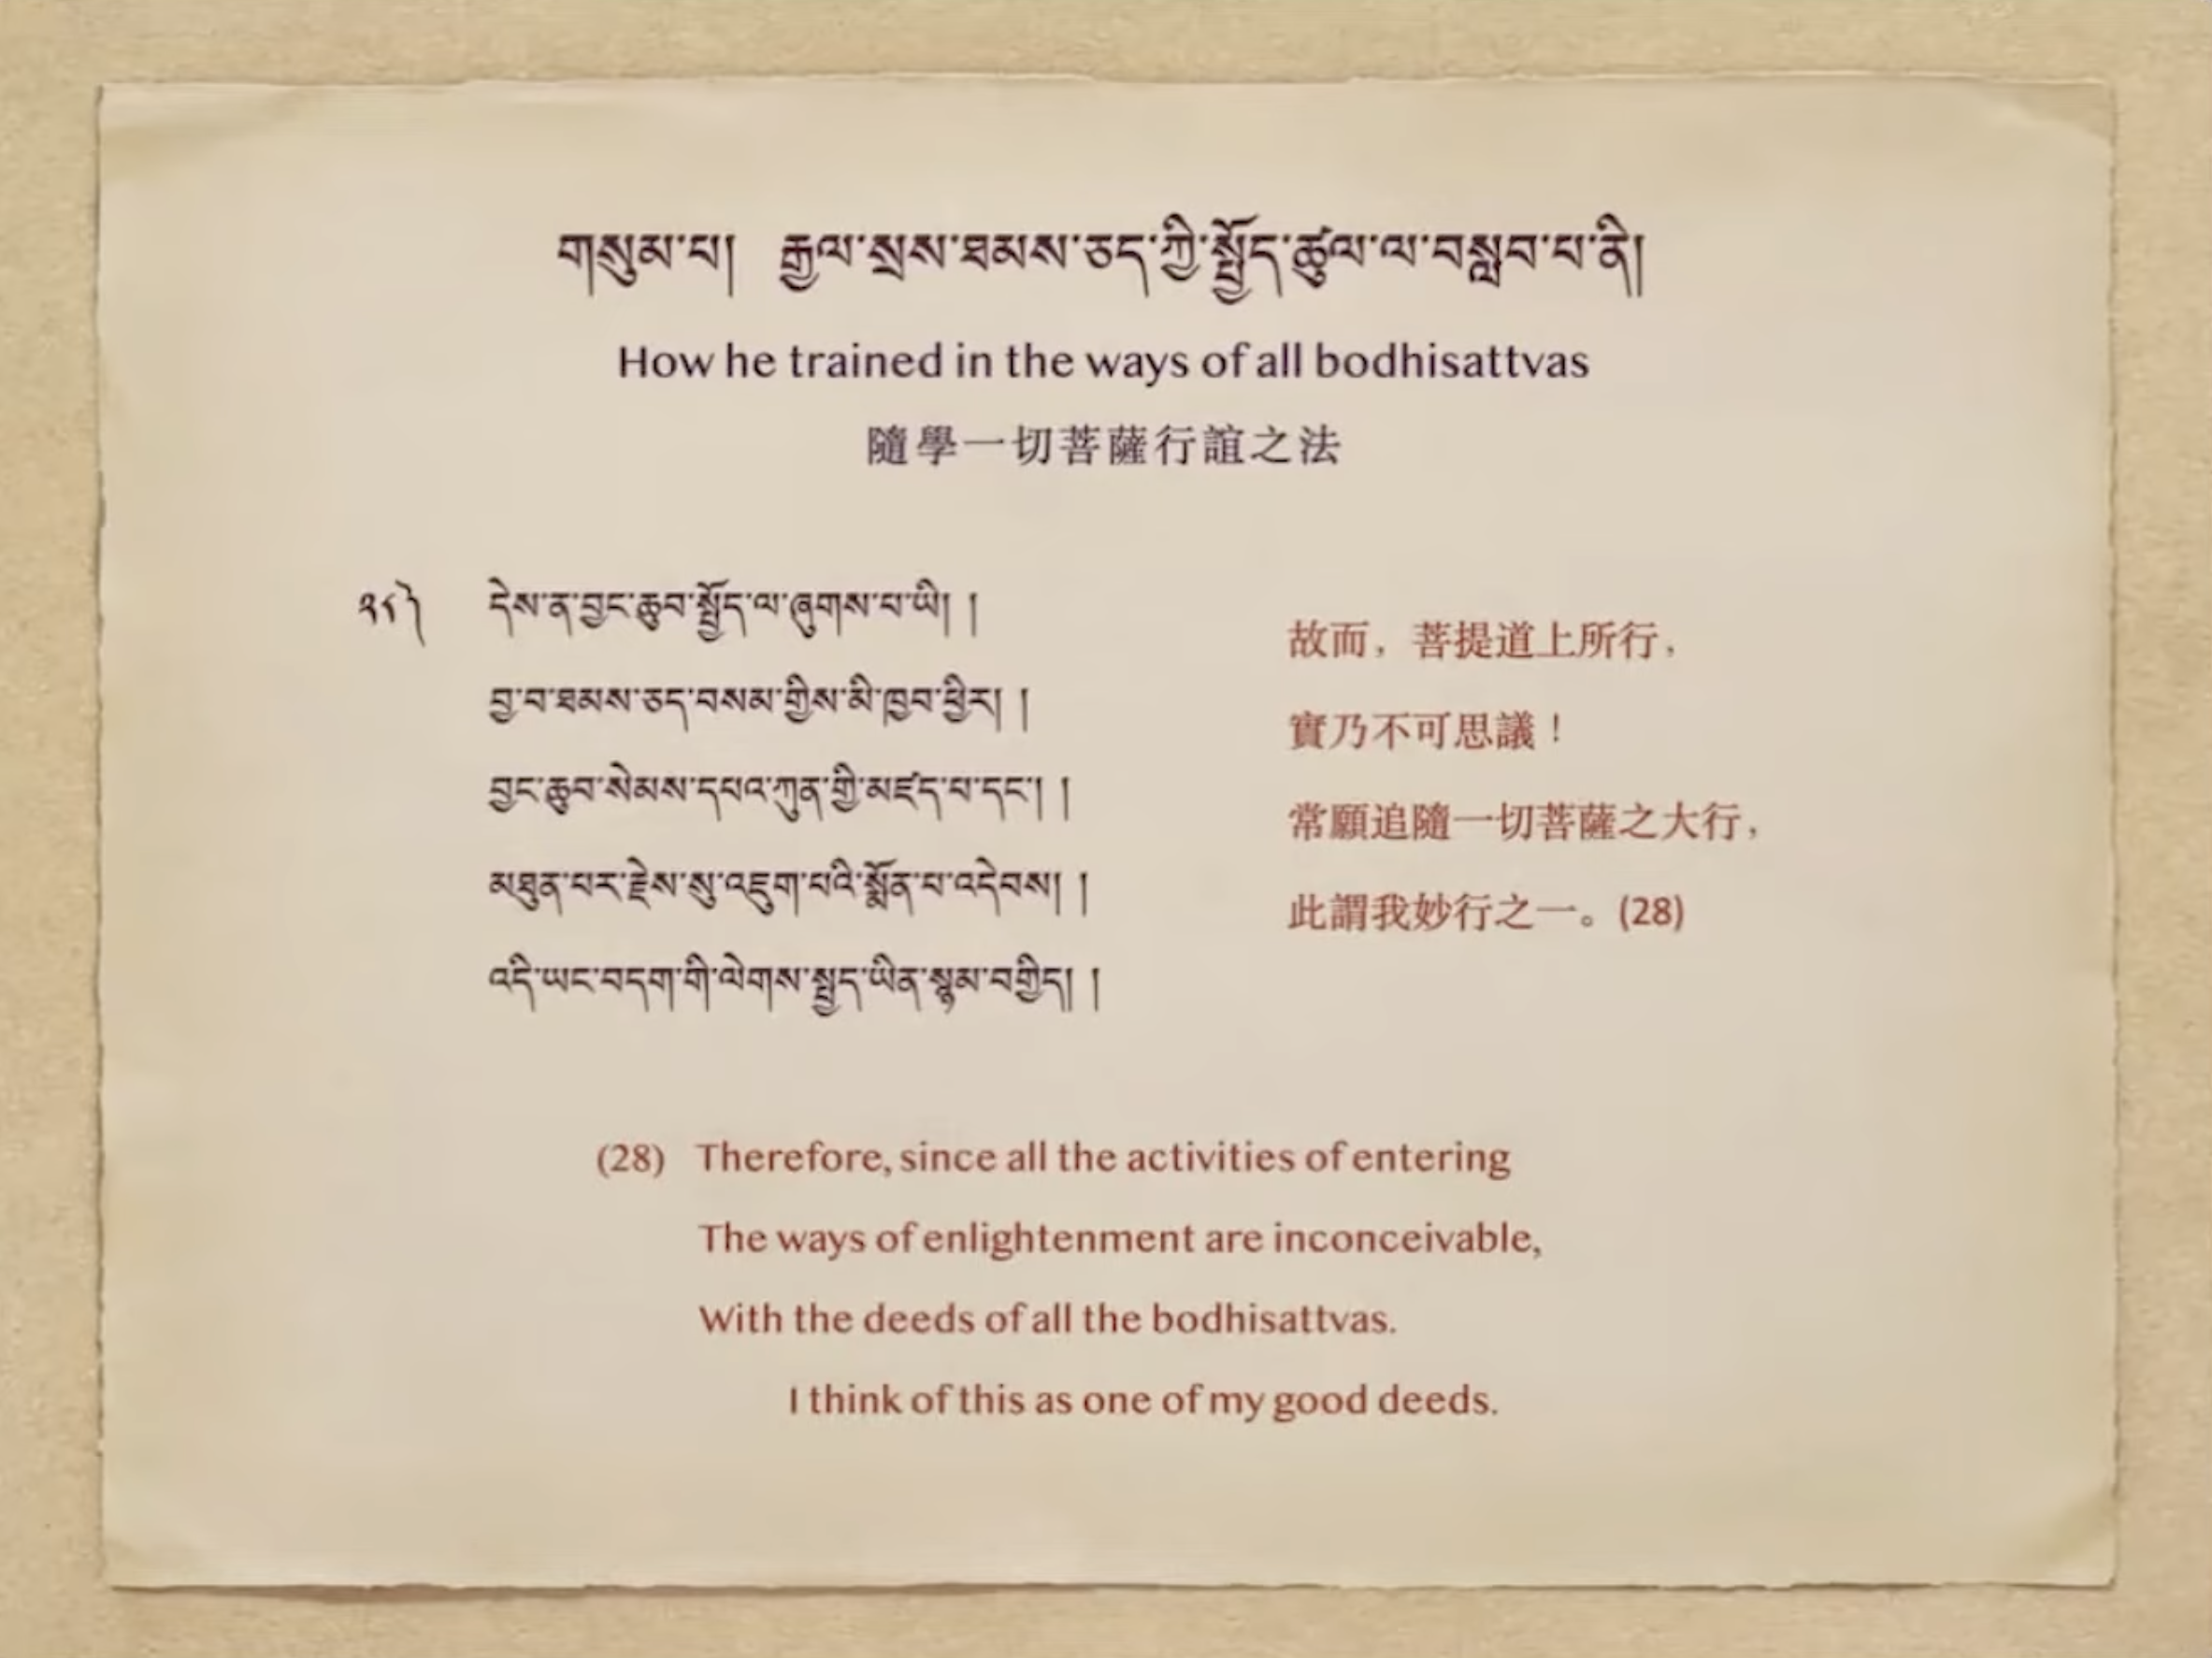 གསུམ་པ། རྒྱལ་སྲས་ཐམས་ཅད་ཀྱི་སྤྱོད་ཚུལ་ལ་བསླབ་པ་ནི།
How he trained in the ways of all bodhisattvas
隨學一切菩薩行誼之法
༢༨༽ དེས་ན་བྱང་ཆུབ་སྤྱོད་ལ་ཞུགས་པ་ཡི། །
བྱ་བ་ཐམས་ཅད་བསམ་གྱིས་མི་ཁྱབ་ཕྱིར། །
བྱང་ཆུབ་སེམས་དཔའ་ཀུན་གྱི་མཛད་པ་དང་། །
མཐུན་པར་རྗེས་སུ་འཇུག་པའི་སྨོན་པ་འདེབས། །
འདི་ཡང་བདག་གི་ལེགས་སྤྱད་ཡིན་སྙམ་བགྱིད། །
故而，菩提道上所行，
實乃不可思議！
常願追隨一切菩薩之大行，
此謂我妙行之一。(28)
(28) Therefore, since all the activities of entering
The ways of enlightenment are inconceivable,
With the deeds of all the bodhisattvas.
I think of this as one of my good deeds.